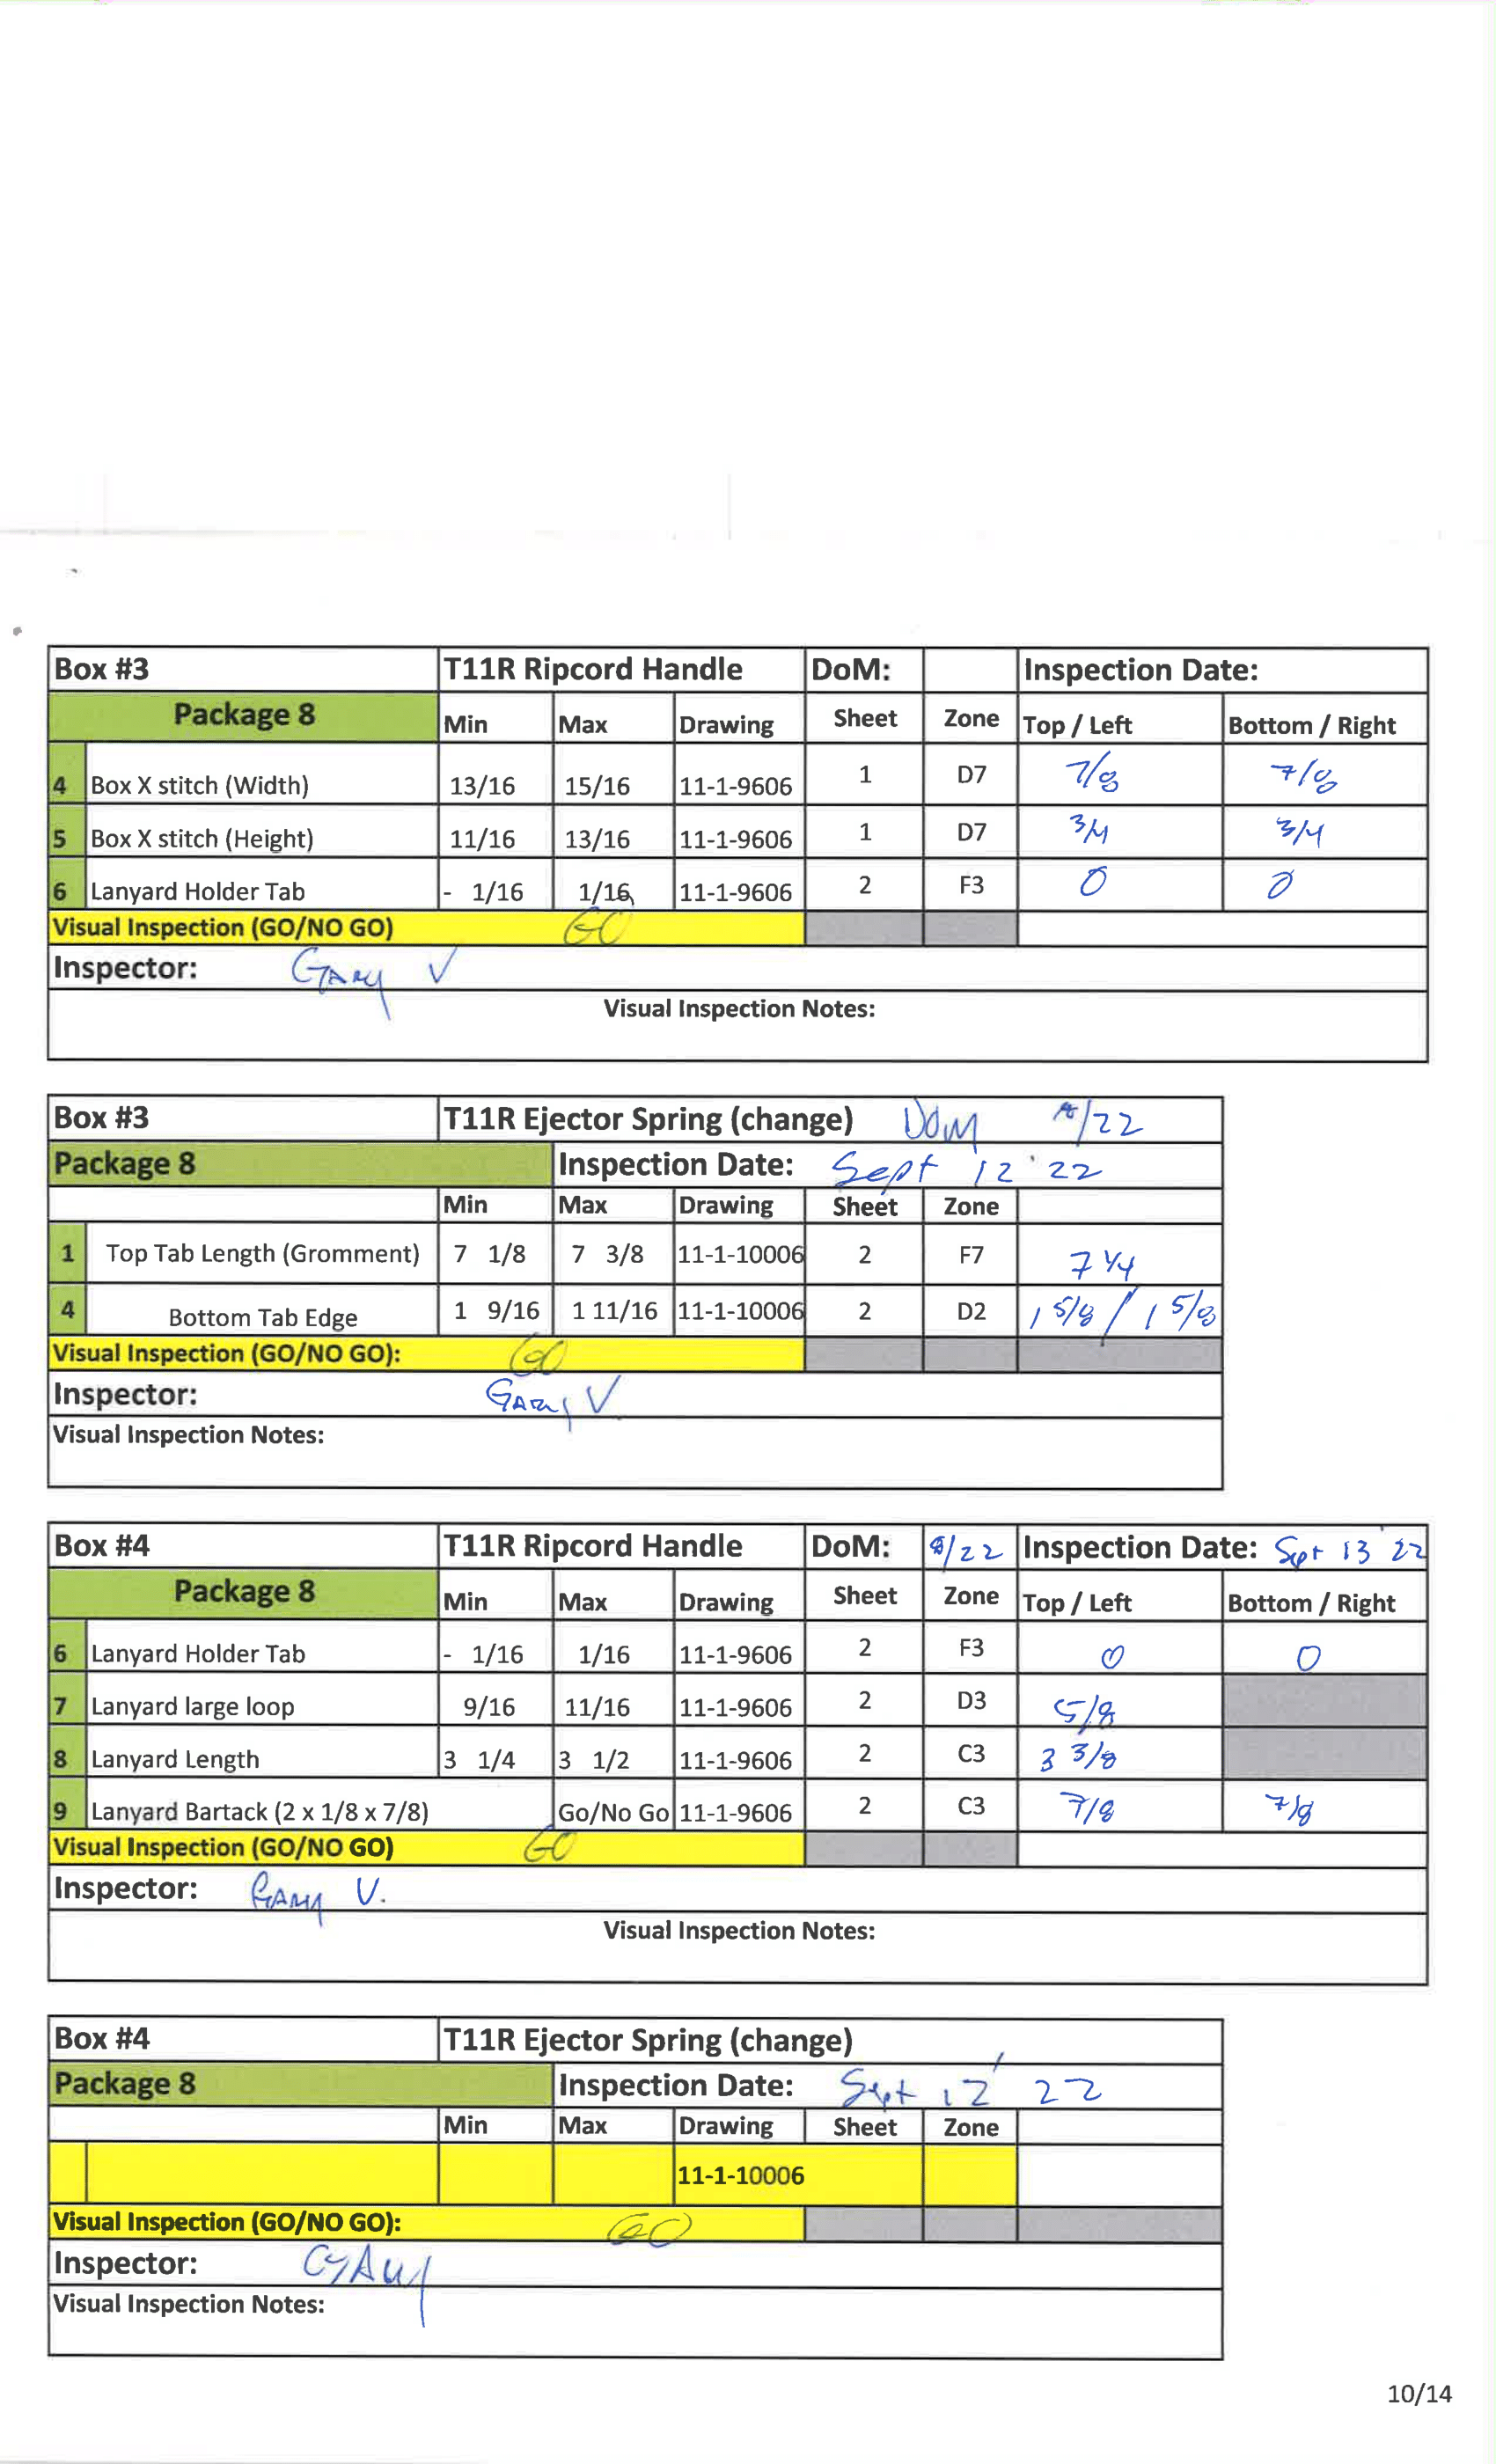 Box #3 T11R Ripcord Handle DoM: Inspection Date:
Package 8 Min Max Drawing Sheet Zone Top / Left Bottom / Right
4 Box X stitch (Width) 13/16 15/16 11-1-9606 1 D7 7/8 7/8
5 Box X stitch (Height) 11/16 13/16 11-1-9606 1 D7 3/4 3/4
6 Lanyard Holder Tab - 1/16 1/16 11-1-9606 2 F3 0 0
Visual Inspection (GO/NO GO) GO
Inspector: Gary V
Visual Inspection Notes:
Box #3 T11R Ejector Spring (change) DOM /22
Package 8 Inspection Date: Sept 12 '22
Min Max Drawing Sheet Zone
1 Top Tab Length (Gromment) 7 1/8 7 3/8 11-1-10006 2 F7 7 1/4
4 Bottom Tab Edge 1 9/16 1 11/16 11-1-10006 2 D2 1 5/8 / 1 5/8
Visual Inspection (GO/NO GO): GO
Inspector: Gary V.
Visual Inspection Notes:
Box #4 T11R Ripcord Handle DoM: /22 Inspection Date: Sept 13 '22
Package 8 Min Max Drawing Sheet Zone Top / Left Bottom / Right
6 Lanyard Holder Tab - 1/16 1/16 11-1-9606 2 F3 0 0
7 Lanyard large loop 9/16 11/16 11-1-9606 2 D3 5/8
8 Lanyard Length 3 1/4 3 1/2 11-1-9606 2 C3 3 3/8
9 Lanyard Bartack (2 x 1/8 x 7/8) Go/No Go 11-1-9606 2 C3 7/8 7/8
Visual Inspection (GO/NO GO) GO
Inspector: Gary V.
Visual Inspection Notes:
Box #4 T11R Ejector Spring (change)
Package 8 Inspection Date: Sept 12 ' 22
Min Max Drawing Sheet Zone
11-1-10006
Visual Inspection (GO/NO GO): GO
Inspector: Gary
Visual Inspection Notes:
10/14